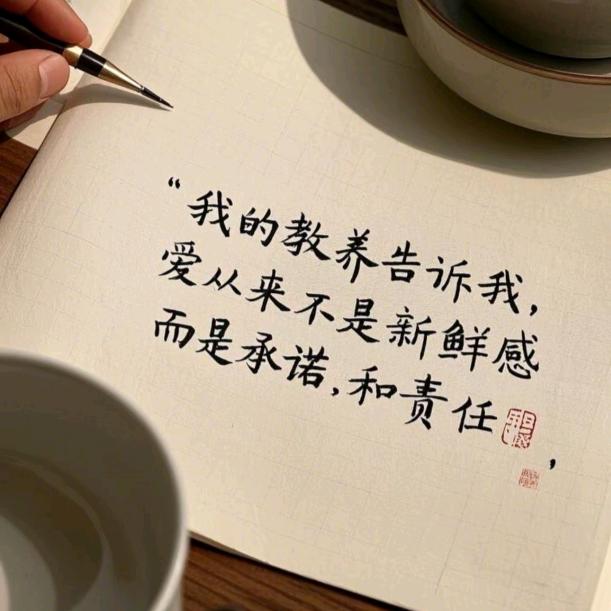 “我的教养告诉我，
爱从来不是新鲜感
而是承诺，和责任
，